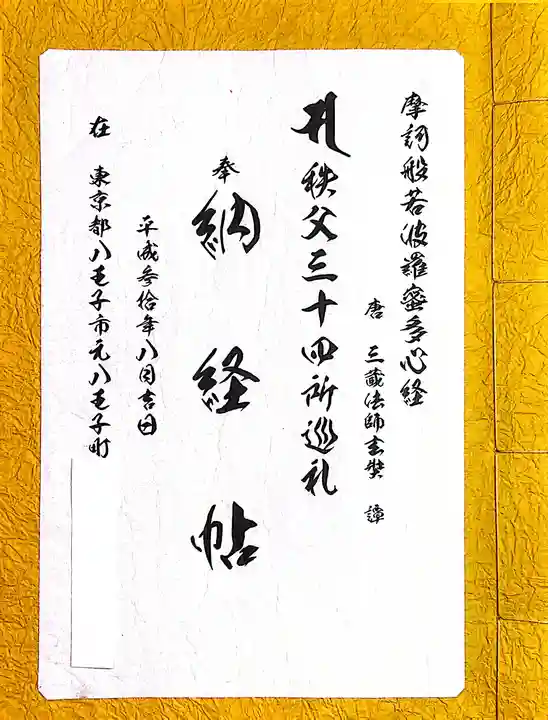 摩訶般若波羅蜜多心経
唐 三蔵法師玄奘 譚
秩父三十四所巡礼
奉 納経帖
平成参拾年八月吉日
在 東京都八王子市元八王子町